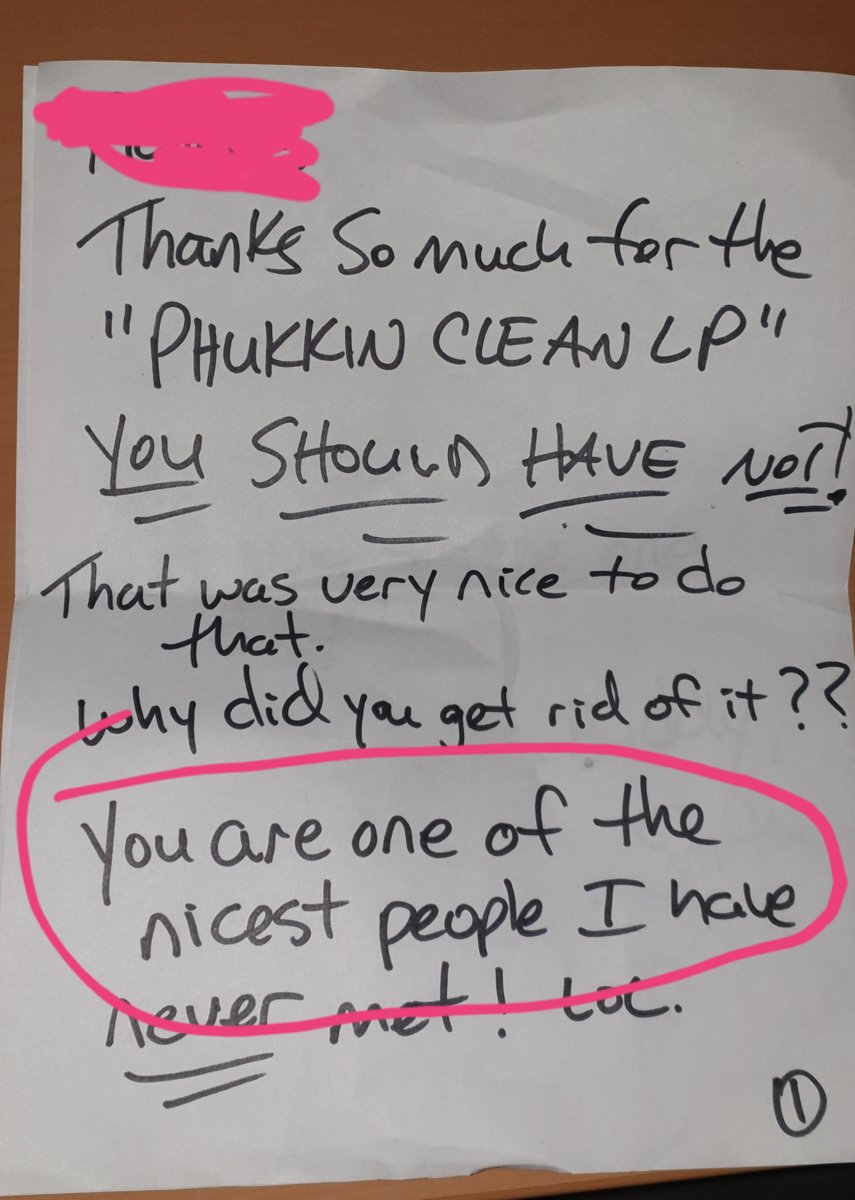 Thanks So much for the
"PHUKKIN CLEAN LP"
YOU SHOULD HAVE NOT!
That was very nice to do
that.
Why did you get rid of it??
You are one of the
nicest people I have
never met! LOL.
1